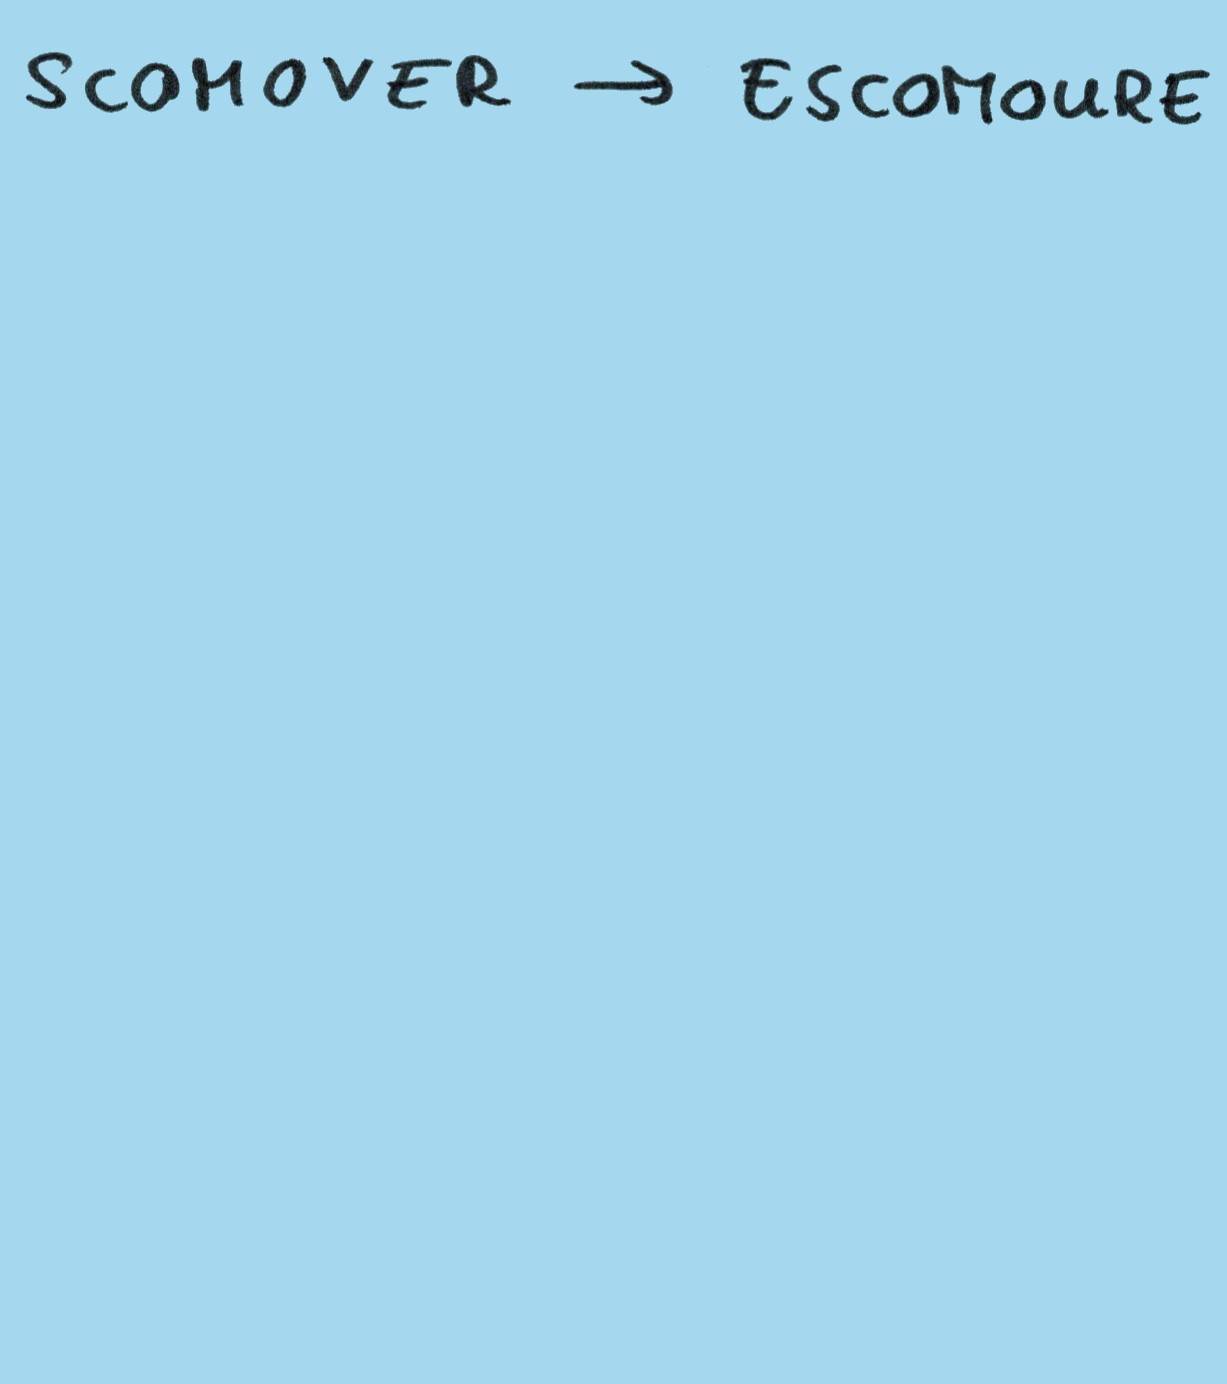 SCOMOVER → ESCOMOURE